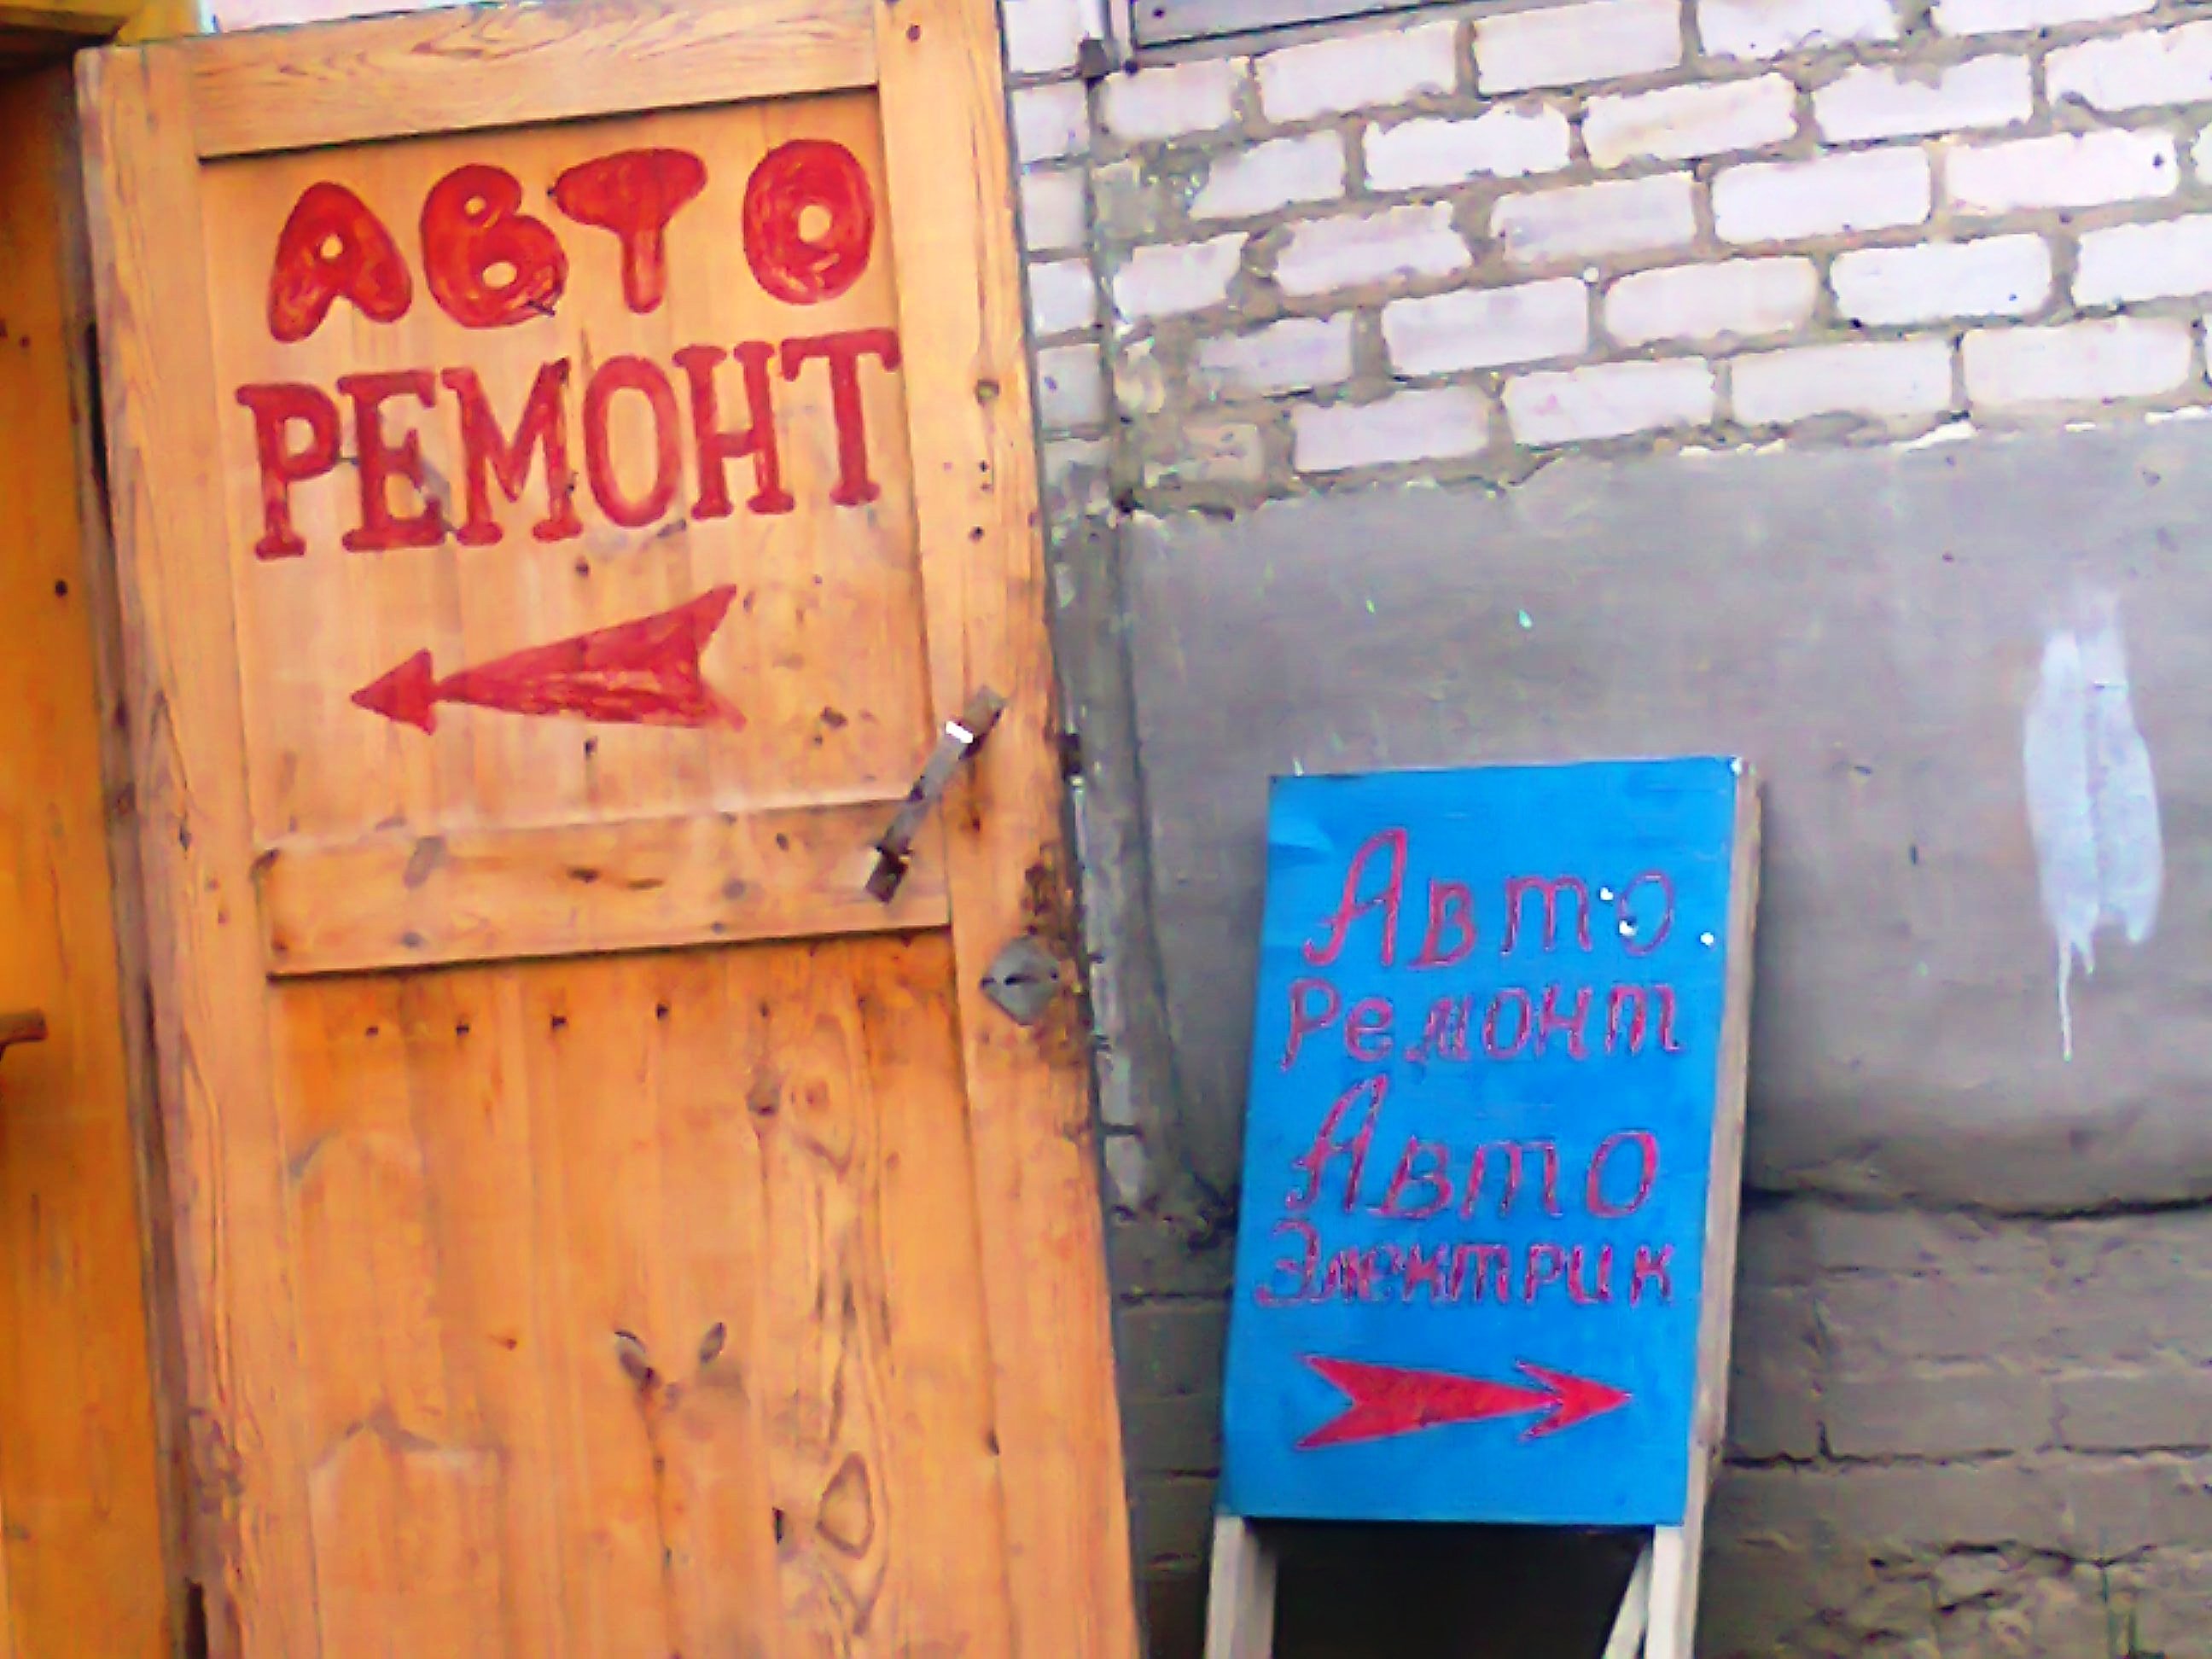 АВТО
РЕМОНТ
Авто
Ремонт
Авто
Электрик